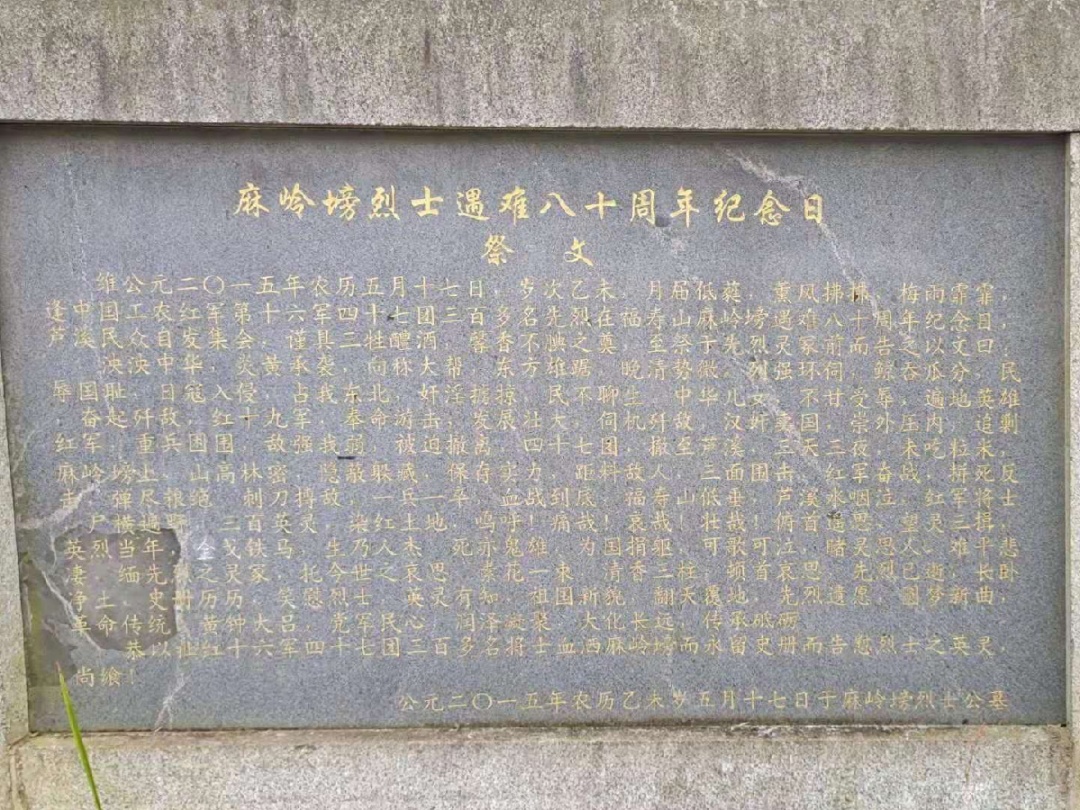 麻岭塝烈士遇难八十周年纪念日
祭文
维公元二〇一五年农历五月十七日，岁次乙未，月届低蕤，熏风拂拂，梅雨霏霏，
逢中国工农红军第十六军四十七团三百多名先烈在福寿山麻岭塝遇难八十周年纪念日，
芦溪民众自发集会，谨具三牲醴酒、馨香不腆之奠，至祭于先烈灵前而告之以文曰：
泱泱中华，炎黄承袭，向称大帮，东方雄踞，晚清势微，烈强环伺，鲸吞瓜分，民
辱国耻，日寇入侵，占我东北，奸淫掳掠，民不聊生，中华儿女，不甘受辱，遍地英雄
奋起歼敌，红十九军，奉命游击，发展壮大，伺机歼敌，
红军，重兵围困，敌强我弱，被迫撤离，四十七团，撤至芦溪，三天三夜，未吃粒米，
麻岭塝上，山高林密，隐蔽躲藏，保存实力，距敌人三面围击，红军奋战，拼死反
击，弹尽粮绝，刺刀搏敌，一兵一卒，血战到底！福寿山低垂，芦溪水咽泣，红军将士
尸横遍，三百英灵，染红土地，呜呼！痛哉！哀哉！壮哉！俯首追思，望灵三揖，
英烈当年，金戈铁马，生乃人杰，死亦鬼雄，为国捐躯，可歌可泣，睹灵思人，难平悲
凄，缅先之灵冢，托今世之哀思，素花一束，清香三柱，顿首哀思，先烈已逝，长卧
净土，史册历历，笑慰烈士，英灵有知，祖国新貌，翻天覆地，先烈遗愿，圆梦新曲，
革命传统，黄钟大吕，党军民心，润泽凝聚，大化长远，传承砥砺，
恭以让红十六军四十七团三百多名将士血洒麻岭塝而永留史册而告慰烈士之英灵，
尚飨！
公元二〇一五年农历乙未岁五月十七日于麻岭塝烈士公墓